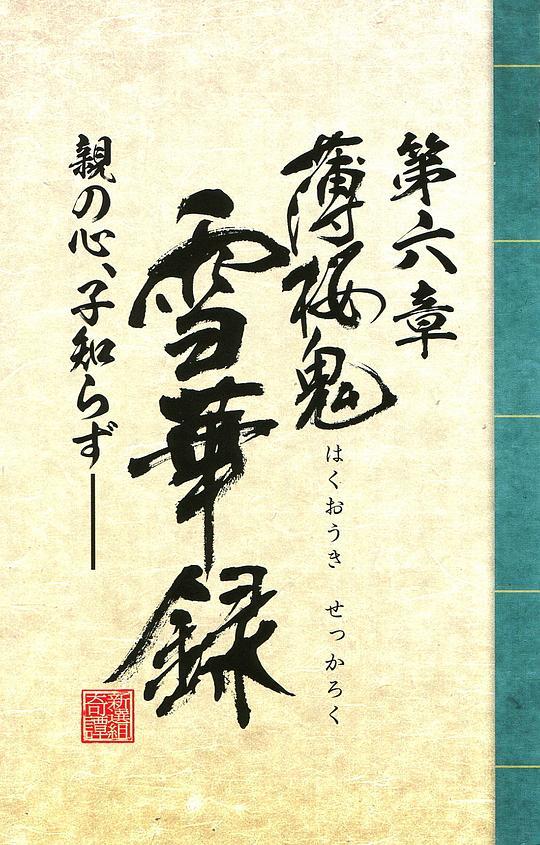 第六章
薄桜鬼
はくおうき せっかろく
雪華録
親の心、子知らず―
新選組
奇譚